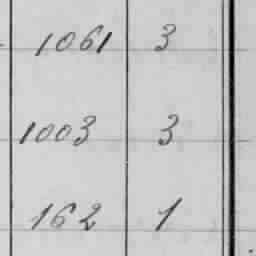 1061 3
1003 3
162 1